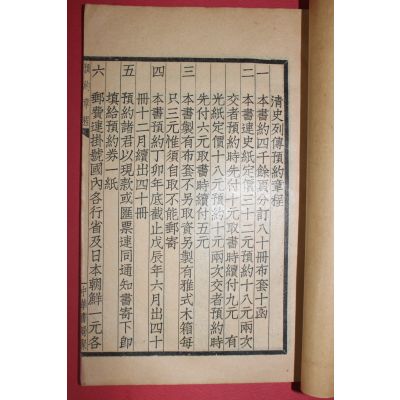 清史列傳預約章程
一 本書約四千餘頁分訂八十冊布套十函
二 本書連史紙定價三十二元預約十八元兩次
交者預約時先付十元取書時續付九元 有
光紙定價十八元預約十元兩次交者預約時
先付六元取書時續付五元
三 本書製有布套不另取資另製有雅式木箱每
只三元惟須自取不能郵寄
四 本書預約丁卯年底截止戊辰年六月出四十
冊十二月續出四十冊
五 預約諸君以現款或匯票連同通知書寄下即
填給預約券一紙
六 郵費連掛號國內各行省及日本朝鮮一元各